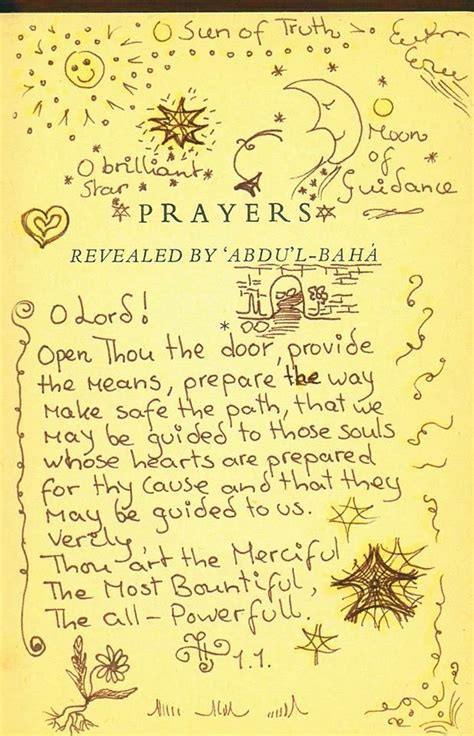 O Sun of Truth
O brilliant
Star
O
Moon
of
Guidance
PRAYERS
REVEALED BY ‘ABDU’L-BAHÁ
O Lord!
Open Thou the door, provide
the means, prepare the way
make safe the path, that we
may be guided to those souls
whose hearts are prepared
for thy Cause and that they
may be guided to us.
Verily,
Thou art the Merciful,
The Most Bountiful,
The all-Powerfull.
1.1.